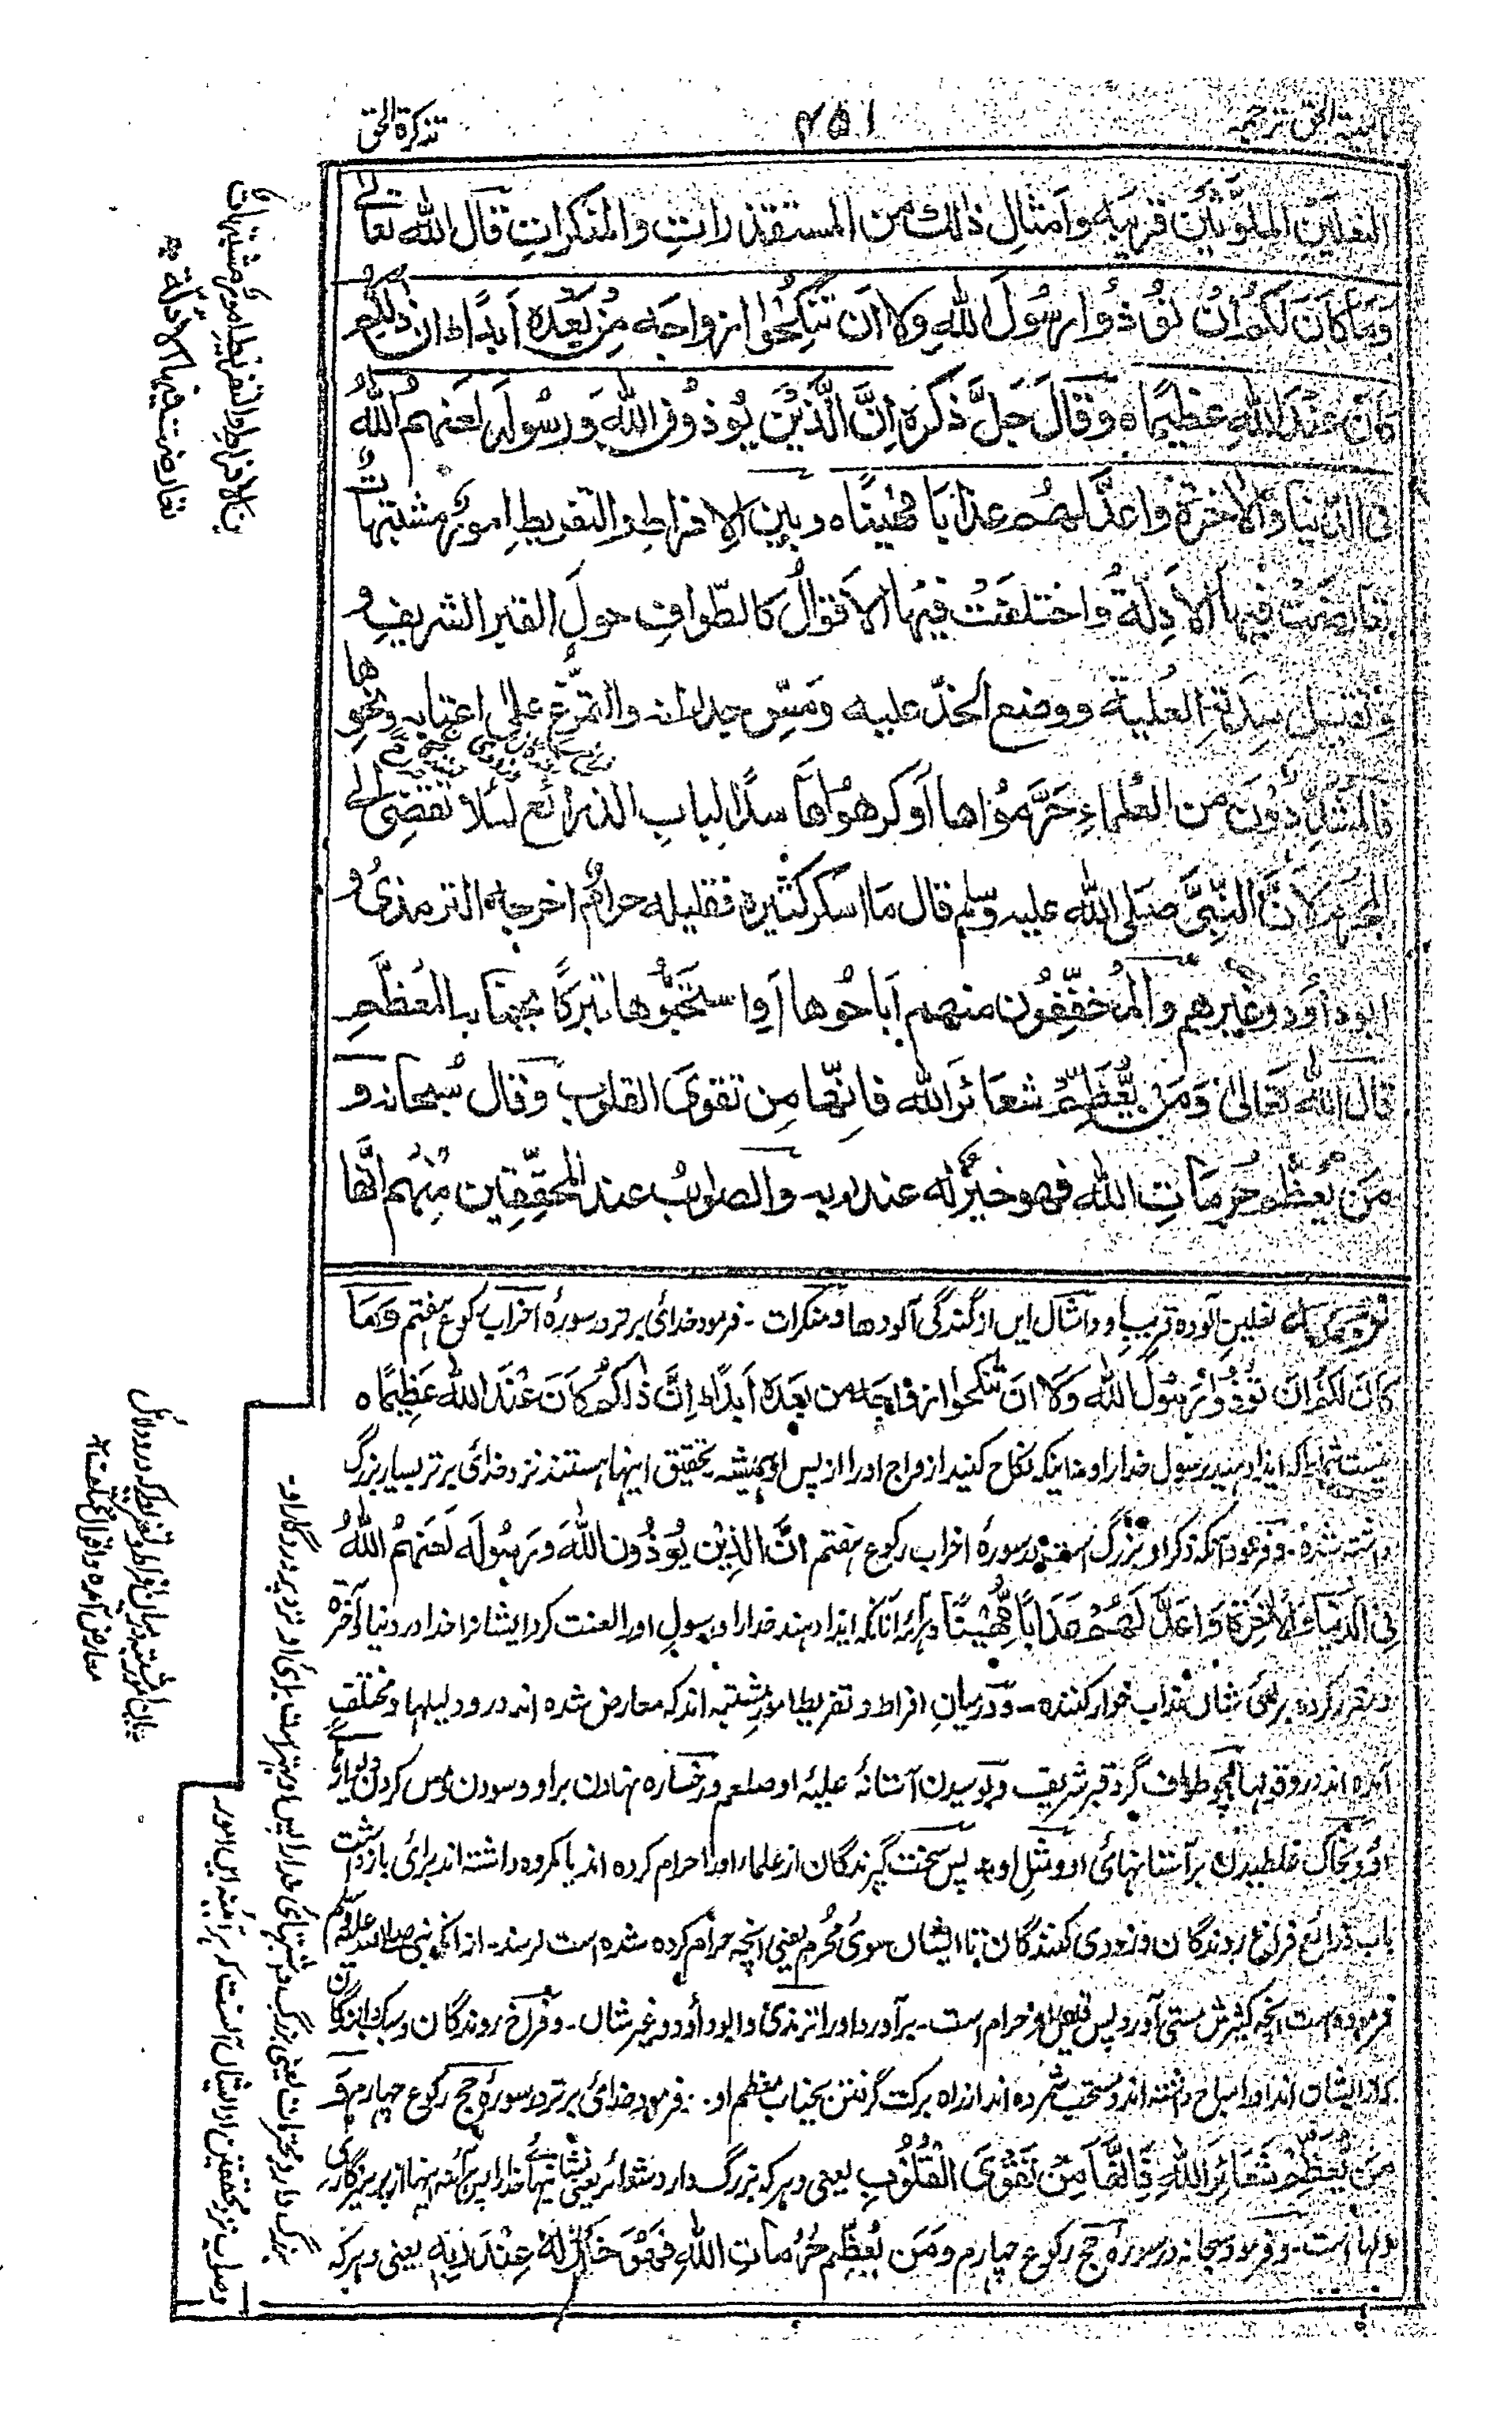 تذكرة الحق
۴۵۱
ترجمہ
النعلين الملوثين قريبه وامثال ذلك من المستقذرات والمنكرات قال الله تعالے
وَمَا كَانَ لَكُمْ اَنْ تُؤْذُوا رَسُولَ اللهِ وَلا اَن تَنْكِحُوا ازواجَه مِنْ بَعْدِه اَبَدًا ان ذلكم
كانَ عِنْدَ اللهِ عظيمًا ه وقالَ جَلَّ ذكره اِنَّ الَّذِيْنَ يُوذون الله وَرسُولَه لعَنهم اللهُ
فى الدنيا والاخرة واعدَّ لهم عذابا مهينًا ه وبين الافراط والتفريط امورٌ مشتبهات
تعارضَتْ فيها الادِلّة واختلفَتْ فيها الاَقوالُ كالطّوافِ حول القبر الشريف و
وتقبيل سدته العُلية ووضع الخدّ عليه ومَسِّ جدرانه والتمرّغ على اعتابه ونحوها
فالمُشدِّدُونَ من العُلماءِ حَرَّمُواها اَو كرهُوها سدًّا لباب الذرائع لئلا تفضِى الے
لاَنَّ النَّبِيَّ صَلى الله عليه وسلم قال مَا اسكر كثيره فقليله حرام اخرجه الترمذىُ و
ابو داود وغيرهم والمُخفِّفُون منهم اَباحُوها اَو استحَبُّوها تبركًا بجنابه المُعظَّم
قال الله تَعَالىٰ وَمَن يُّعَظِّمْ شعَائرَ الله فاِنَّها مِن تقوىَ القلوب وقال سُبحانه و
مَن يُعظِّم حُرمَاتِ الله فهو خيرٌ له عند ربه والصوابُ عند المحقّقين مِنهُم انّها
ترجمہ نعلین آلودہ قریب او وامثال ایں از گندگی آلودها ومنکرات - فرمود خدائی برتر در سورۂ احزاب رکوع ہفتم وَمَا
كَانَ لَكُمْ اَنْ تُؤْذُوْا رَسُوْلَ اللهِ وَلَا اَنْ تَنْكِحُوا ازواجَه من بعدِه اَبدًا اِنَّ ذٰلكم كَانَ عِنْدَ اللهِ عَظِيمًا ه
نیست شما را کہ ایذا دہید رسول خدا را و نہ اینکہ نکاح کنید ازواج او را از پس او ہمیشہ بتحقیق اینها ہستند نزد خدائی برتر بسیار بزرگ
وفرمود آنکہ ذکر او بزرگ است در سورۂ احزاب رکوع ہفتم اِنَّ الَّذِيْنَ يُوْذُوْنَ اللهَ وَرَسُوْلَه لَعَنَهُمُ اللهُ
فِى الدُّنْيَا وَالْاٰخِرَةِ وَاَعَدَّ لَهُمْ عَذَابًا مُّهِيْنًا ہرآئینہ آنانکہ ایذا دہند خدا را و رسول او را لعنت کرد ایشانرا خدا در دنیا و آخرة
ومقرر کردہ برائی شان عذاب خوار کنندہ - و درمیان افراط و تفریط امور مشتبہ اند کہ معارض شدہ اند در و دلیلها و مختلف
آمدہ اند در و قولها ہمچو طواف گرد قبر شریف و بوسیدن آستانۂ علیۂ او صلعم و رخسارہ نهادن بر او و سودن ومس کردن دیوارهائے
او و بخاک غلطیدن بر آستانهائ او ومثل او پس سخت گیرندگان از علماء او را حرام کردہ اند یا مکروہ داشتہ اند برائ بازداشت
باب ذرائع فراغ روندگان و زودی کنندگان تا ایشان سوئ مُحرم یعنی آنچہ حرام کردہ شدہ است نرسند - از آنکہ نبی صلی الله علیہ وسلم
فرمودہ است آنچہ کثیرش مستی آورد پس قلیل او حرام است - برآورد او را ترمذیٔ و ابوداؤد و غیر شاں - و فراخ روندگان و سبک دارندگان
کہ از ایشاں اند او را مباح داشتہ اند و مستحب شمردہ اند از راہ برکت گرفتن بجناب معظم او - فرمود خدائی برتر در سورۂ حج رکوع چہارم وَ
مَنْ يُّعَظِّمْ شَعَائِرَ اللهِ فَاِنَّهَا مِنْ تَقْوَى الْقُلُوْبِ یعنی و ہر کہ بزرگ دارد شعائر یعنی نشانیهائے خدا را پس ہرآئینہ اینها از پرہیزگاری
دلها است - و فرمود سبحانہ در سورۂ حج رکوع چہارم وَمَن يُعَظِّم حُرُمَاتِ اللهِ فَهُوَ خَيْرٌ لَّهُ عِنْدَ رَبِّه یعنی و ہر کہ
بین الافراط والتفریط امور مشتبهات
تعارضت فیها الادلة
بیان امور مشتبہ درمیان افراط و تفریط کہ در و دلائل
معارض آمدہ و اقوال مختلفہ
بزرگ دارد حرمات یعنی بزرگ داشتهائی خدا را پس او بہتر است برائ او نزد پروردگار او -
وصواب نزد محققین از ایشاں آنست کہ ہرآئینہ ایں امور